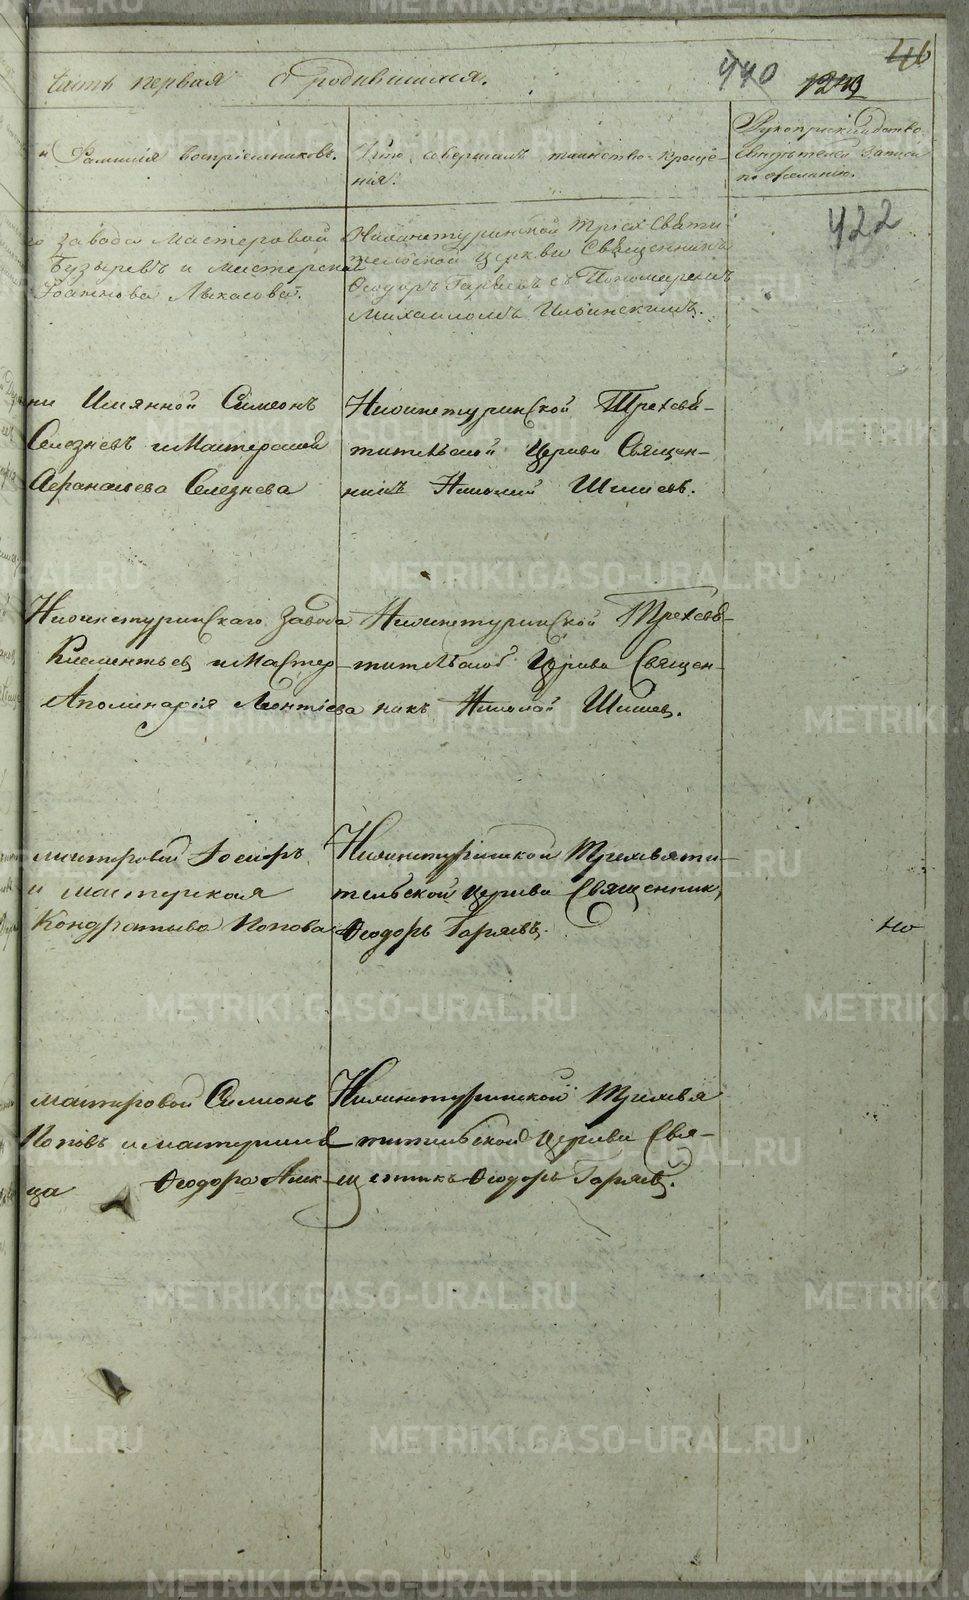 METRIKI.GASO-URAL.RU
46
440
1243
Часть первая О родившихся.
и Фамилія воспріемниковъ.
Кто совершалъ таинство креще-
нія.
Рукоприкладство
свидѣтелей записи
по желанію.
422
завода Мастеровой
Бузыревъ и мастерская
Нижнетуринской Трех Святи
тельской церкви Священникъ
Ѳеодоръ Гаряевъ съ Пономаремъ
Михаиломъ Ильинскимъ.
ни Имянной Симеонъ
Селезневъ и Мастерской
Афанасьева Селезнева
Нижнетуринской Трехсвя-
тительской Церкви Священ-
никъ Николай Шишевъ.
Нижнетуринскаго завода
Климентьев и Мастер-
Аполинарія Леонтіева
Нижнетуринской Трехсвя-
тительской Церкви Священ-
никъ Николай Шишев.
мастеровой Іосифъ
и мастерская
Кондратьева Попова
Нижнетуринской Трехсвяти-
тельской церкви Священник
Ѳеодоръ Гаряевъ.
мастеровой Симионъ
Поповъ и мастерская
ца Ѳеодора Алек-
Нижнетуринской Трехсвя
тительской церкви Свя-
щенникъ Ѳеодоръ Гаряев.